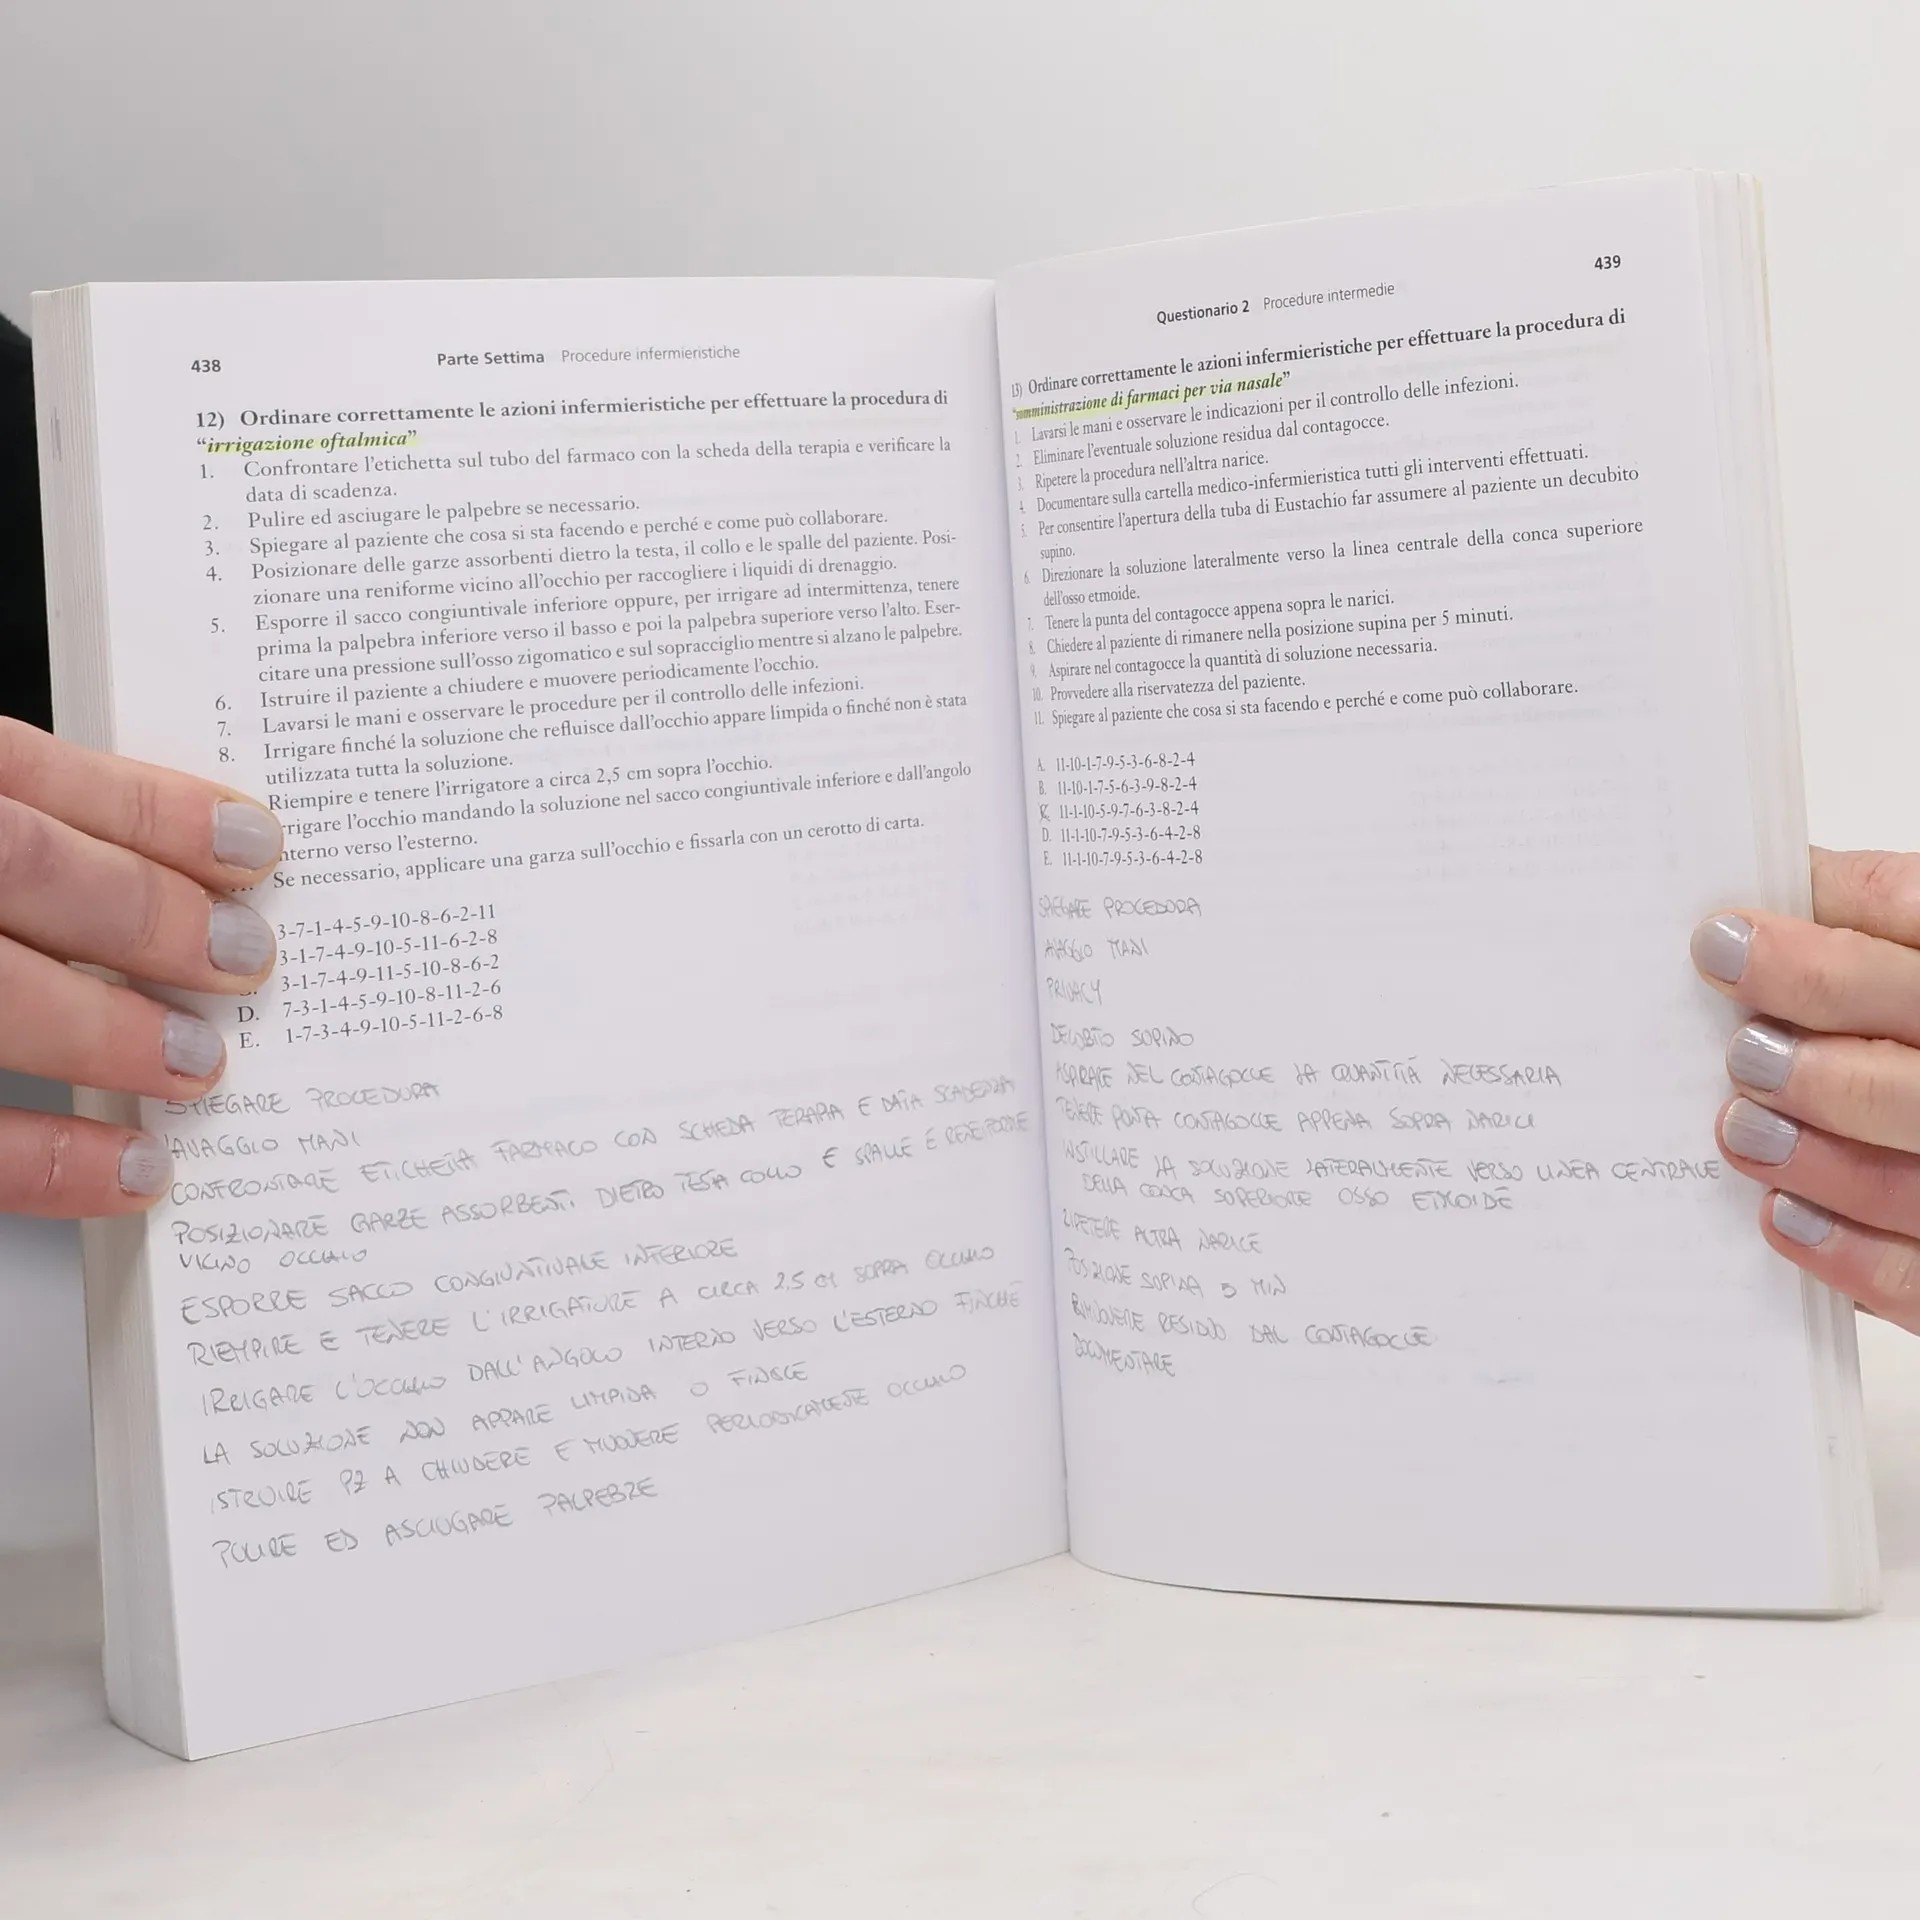 438 Parte Settima Procedure infermieristiche
12) Ordinare correttamente le azioni infermieristiche per effettuare la procedura di
“irrigazione oftalmica”
1. Confrontare l’etichetta sul tubo del farmaco con la scheda della terapia e verificare la
data di scadenza.
2. Pulire ed asciugare le palpebre se necessario.
3. Spiegare al paziente che cosa si sta facendo e perché e come può collaborare.
4. Posizionare delle garze assorbenti dietro la testa, il collo e le spalle del paziente. Posi-
zionare una reniforme vicino all’occhio per raccogliere i liquidi di drenaggio.
5. Esporre il sacco congiuntivale inferiore oppure, per irrigare ad intermittenza, tenere
prima la palpebra inferiore verso il basso e poi la palpebra superiore verso l’alto. Eser-
citare una pressione sull’osso zigomatico e sul sopracciglio mentre si alzano le palpebre.
6. Istruire il paziente a chiudere e muovere periodicamente l’occhio.
7. Lavarsi le mani e osservare le procedure per il controllo delle infezioni.
8. Irrigare finché la soluzione che refluisce dall’occhio appare limpida o finché non è stata
utilizzata tutta la soluzione.
Riempire e tenere l’irrigatore a circa 2,5 cm sopra l’occhio.
rrigare l’occhio mandando la soluzione nel sacco congiuntivale inferiore e dall’angolo
nterno verso l’esterno.
Se necessario, applicare una garza sull’occhio e fissarla con un cerotto di carta.
3-7-1-4-5-9-10-8-6-2-11
3-1-7-4-9-10-5-11-6-2-8
3-1-7-4-9-11-5-10-8-6-2
D. 7-3-1-4-5-9-10-8-11-2-6
E. 1-7-3-4-9-10-5-11-2-6-8
SPIEGARE PROCEDURA
LAVAGGIO MANI
CONFRONTARE ETICHETTA FARMACO CON SCHEDA TERAPIA E DATA SCADENZA
POSIZIONARE GARZE ASSORBENTI DIETRO TESTA COLLO E SPALLE E RENIFORME
VICINO OCCHIO
ESPORRE SACCO CONGIUNTIVALE INFERIORE
RIEMPIRE E TENERE L'IRRIGATORE A CIRCA 2,5 CM SOPRA OCCHIO
IRRIGARE L'OCCHIO DALL'ANGOLO INTERNO VERSO L'ESTERNO FINCHÉ
LA SOLUZIONE NON APPARE LIMPIDA O FINISCE
ISTRUIRE PZ A CHIUDERE E MUOVERE PERIODICAMENTE OCCHIO
PULIRE ED ASCIUGARE PALPEBRE
Questionario 2 Procedure intermedie 439
13) Ordinare correttamente le azioni infermieristiche per effettuare la procedura di
“somministrazione di farmaci per via nasale”
1. Lavarsi le mani e osservare le indicazioni per il controllo delle infezioni.
2. Eliminare l’eventuale soluzione residua dal contagocce.
3. Ripetere la procedura nell’altra narice.
4. Documentare sulla cartella medico-infermieristica tutti gli interventi effettuati.
5. Per consentire l’apertura della tuba di Eustachio far assumere al paziente un decubito
supino.
6. Direzionare la soluzione lateralmente verso la linea centrale della conca superiore
dell’osso etmoide.
7. Tenere la punta del contagocce appena sopra le narici.
8. Chiedere al paziente di rimanere nella posizione supina per 5 minuti.
9. Aspirare nel contagocce la quantità di soluzione necessaria.
10. Provvedere alla riservatezza del paziente.
11. Spiegare al paziente che cosa si sta facendo e perché e come può collaborare.
A. 11-10-1-7-9-5-3-6-8-2-4
B. 11-10-1-7-5-6-3-9-8-2-4
C. 11-1-10-5-9-7-6-3-8-2-4
D. 11-1-10-7-9-5-3-6-4-2-8
E. 11-1-10-7-9-5-3-6-4-2-8
SPIEGARE PROCEDURA
LAVAGGIO MANI
PRIVACY
DECUBITO SUPINO
ASPIRARE NEL CONTAGOCCE LA QUANTITÀ NECESSARIA
TENERE PUNTA CONTAGOCCE APPENA SOPRA NARICI
INSTILLARE LA SOLUZIONE LATERALMENTE VERSO LINEA CENTRALE
DELLA CONCA SUPERIORE OSSO ETMOIDE
RIPETERE ALTRA NARICE
POSIZIONE SUPINA 5 MIN
RIMUOVERE RESIDUO DAL CONTAGOCCE
DOCUMENTARE